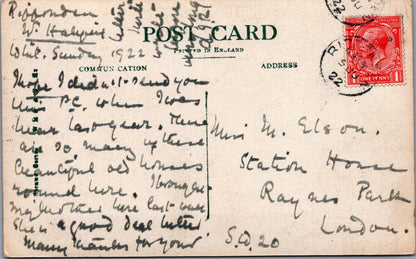 Ripponden
Nr. Halifax
Whit. Sunday, 1922
letter
POST CARD
PRINTED IN ENGLAND
COMMUNICATION
ADDRESS
Hope I didn't send you
this P.C. when I was
here last year. There
are so many of these
beautiful old houses
round here. I brought
my mother here last week
She is a good deal better
Many thanks for your
Miss M. Elson.
Station House
Raynes Park
London.
S.W.20
RI
22
ONE PENNY